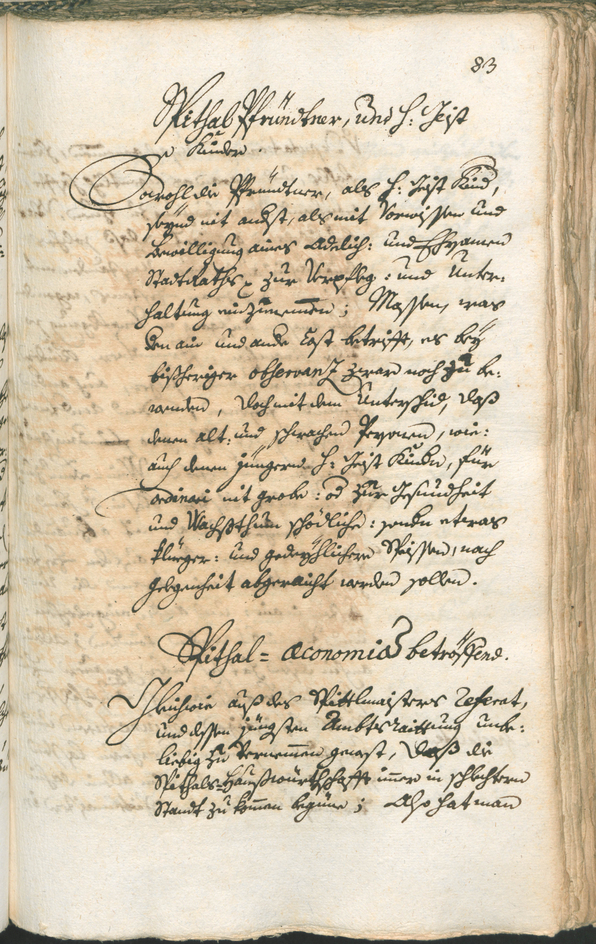 83
Spithal Pfründtner, und H: Geist
Kinder.
Sowohl die Pfründtner, als H: Geist Kind,
seynd nit andst, als mit Vorwissen und
bewilligung aines Adelich: und Ehrsamen
StadtRaths zur Verpfleg: und Unter-
haltung einzunemmen; Massen, was
den ain und ande Cost betrifft, es bey
bißheriger observanz zwar noch zu be-
wenden, doch mit dem Unterschid, daß
denen alt: und schwachen Persohnen, wie-
auch denen jüngern H: Geist Kindn, für
ordinari nit grobe: od zur Gesundheit
und Wachsthum schödliche: sondn etwas
klueger: und gedeyhlichere Speissen, nach
gelegenheit abgeraicht werden sollen.
Spithal= œconomiam betröffend.
Gleichwie auß des Spittlmaisters referat,
und dessen jüngsten Ambtsraittung unbe-
liebig zu vernemmen gewest, daß die
Spithals-Haußwürthschafft immer in schlechtern
Standt zu kommen beginne; Also hat man